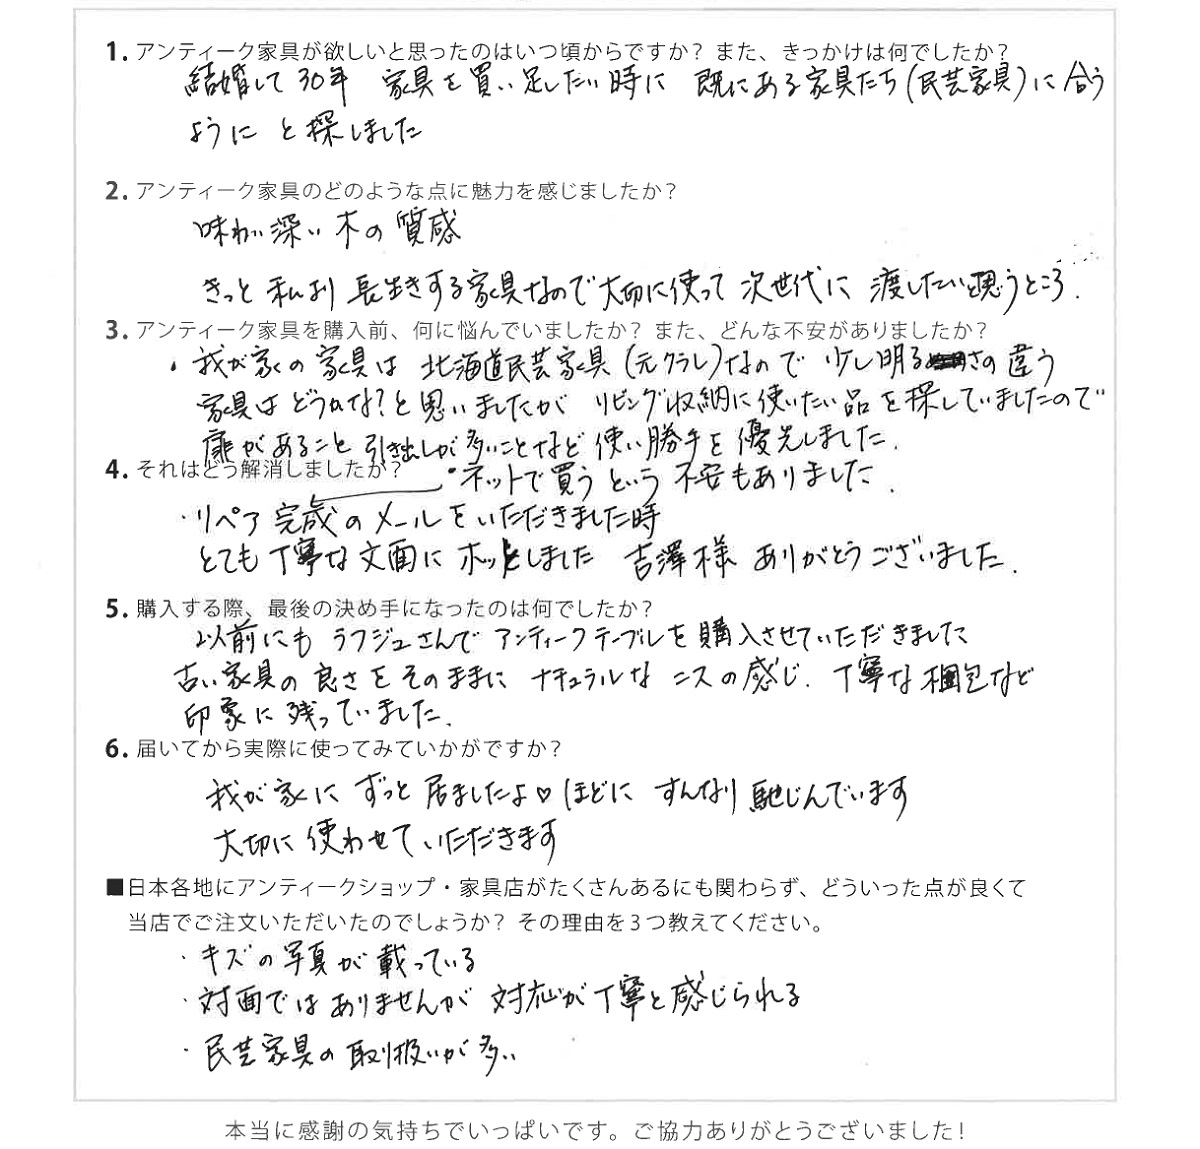 1. アンティーク家具が欲しいと思ったのはいつ頃からですか? また、きっかけは何でしたか?
結婚して30年 家具を買い足したい時に 既にある家具たち(民芸家具)に合う
ように と探しました
2. アンティーク家具のどのような点に魅力を感じましたか?
味わい深い木の質感
きっと私より長生きする家具なので大切に使って次世代に渡したいと思うところ.
3. アンティーク家具を購入前、何に悩んでいましたか? また、どんな不安がありましたか?
・我が家の家具は 北海道民芸家具(元クラレ)なので 少し明るさの違う
家具はどうかな?と思いましたが リビング収納に使いたい品を探していましたので
扉があること 引き出しが多いことなど使い勝手を優先しました.
4. それはどう解消しましたか?
・ネットで買うという不安もありました.
・リペア完成のメールをいただきました時
とても丁寧な文面にホッとしました 吉澤様ありがとうございました.
5. 購入する際、最後の決め手になったのは何でしたか?
以前にもラフジュさんでアンティークテーブルを購入させていただきました
古い家具の良さをそのままに ナチュラルなニスの感じ. 丁寧な梱包など
印象に残っていました.
6. 届いてから実際に使ってみていかがですか?
我が家にずっと居ましたよ♡ほどに すんなり馳じんでいます
大切に使わせていただきます
■日本各地にアンティークショップ・家具店がたくさんあるにも関わらず、どういった点が良くて
当店でご注文いただいたのでしょうか? その理由を3つ教えてください。
・キズの写真が載っている
・対面ではありませんが 対応が丁寧と感じられる
・民芸家具の取り扱いが多い
本当に感謝の気持ちでいっぱいです。ご協力ありがとうございました!